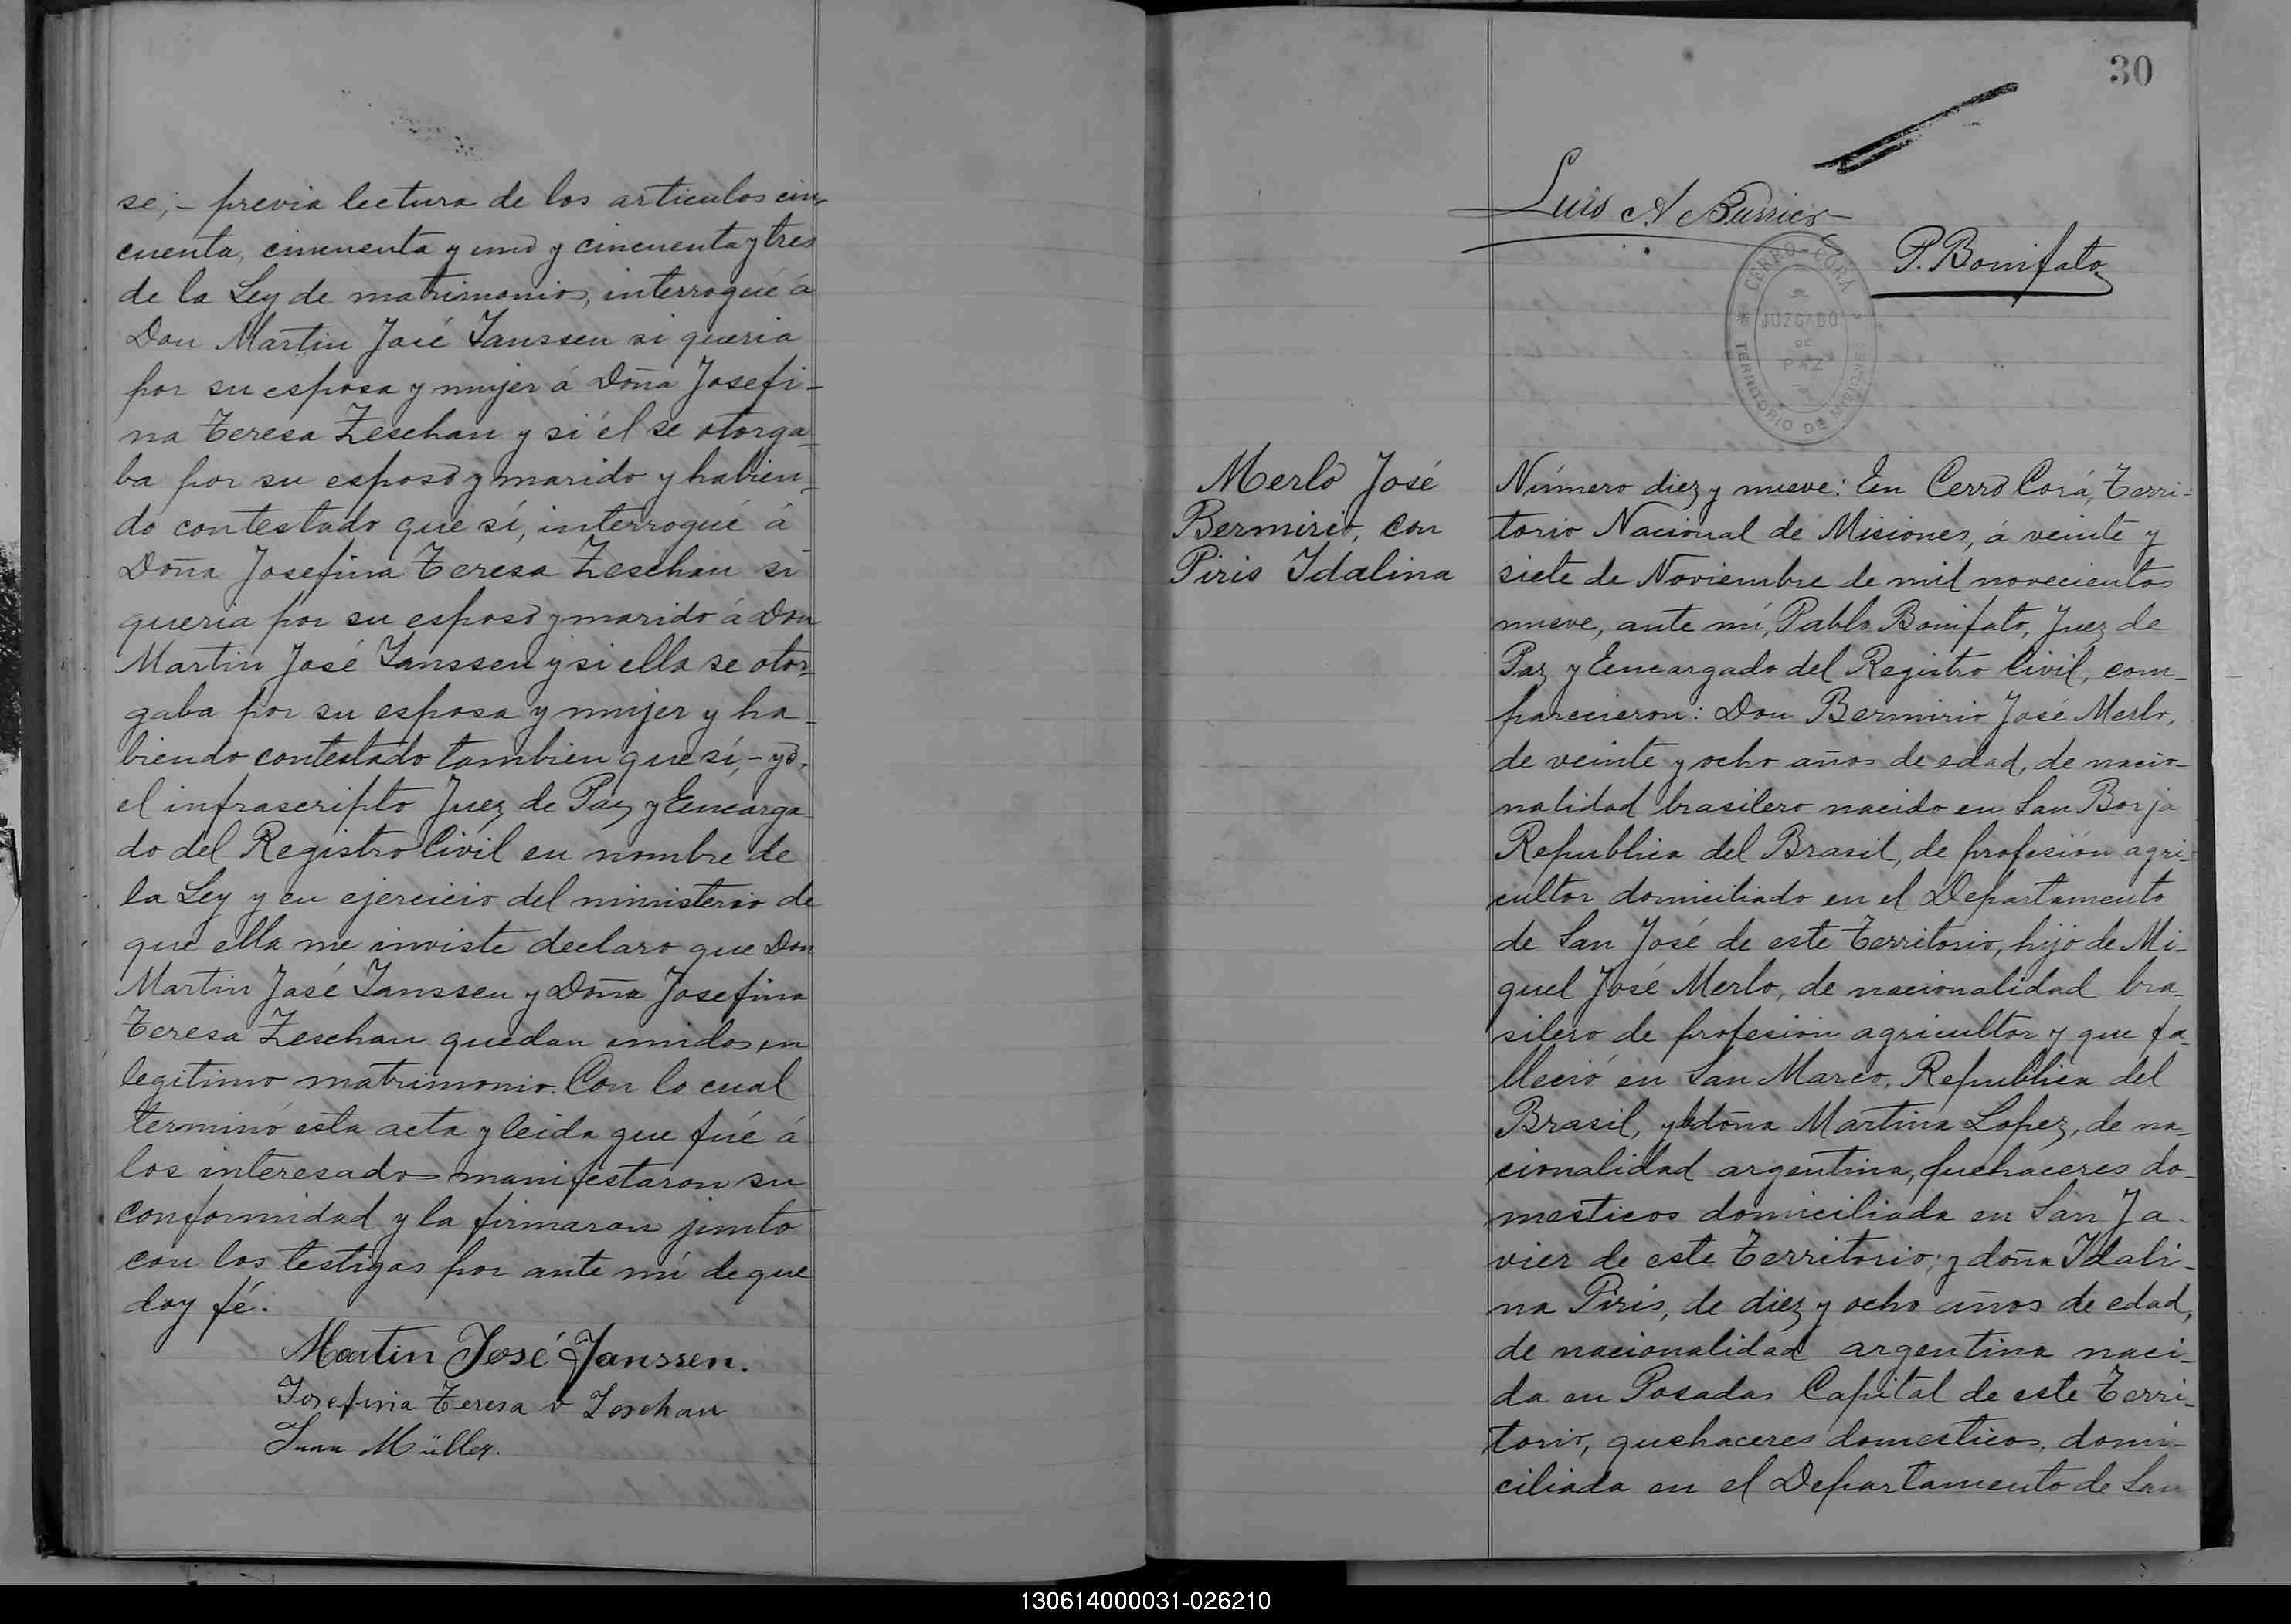 se, – previa lectura de los articulos cin-
cuenta, cincuenta y uno y cincuenta y tres
de la Ley de matrimonio, interrogué á
Don Martin José Janssen si queria
por su esposa y mujer á Doña Josefi-
na Teresa Zeschau y si él se otorga-
ba por su esposo y marido y habien-
do contestado que sí, interrogué á
Doña Josefina Teresa Zeschau si
queria por su esposo y marido á Don
Martin José Janssen y si ella se otor-
gaba por su esposa y mujer y ha-
biendo contestado tambien que sí, – yo,
el infrascripto Juez de Paz y Encarga-
do del Registro Civil en nombre de
la Ley y en ejercicio del ministerio de
que ella me inviste declaro que Don
Martin José Janssen y Doña Josefina
Teresa Zeschau quedan unidos en
legitimo matrimonio. Con lo cual
terminó esta acta y leida que fué á
los interesado manifestaron su
conformidad y la firmaron junto
con los testigos por ante mí de que
doy fé.
Martin José Janssen.
Josefina Teresa v Zeschau
Juan Müller.
30
Luis A
P. Bonifato
CERRO-CORÁ
JUZGADO
DE
PAZ
TERRITORIO DE MISIONES
Merlo José
Bermirio, con
Piris Idalina
Número diez y nueve: En Cerro Corá, Terri-
torio Nacional de Misiones, á veinte y
siete de Noviembre de mil novecientos
nueve, ante mí, Pablo Bonifato, Juez de
Paz y Encargado del Registro Civil, com-
parecieron: Don Bermirio José Merlo,
de veinte y ocho años de edad, de nacio-
nalidad brasilero nacido en San Borja
Republica del Brasil, de profesión agri-
cultor domiciliado en el Departamento
de San José de este Territorio, hijo de Mi-
guel José Merlo, de nacionalidad bra-
silero de profesión agricultor y que fa-
lleció en San Marco, Republica del
Brasil, y de doña Martina Lopez, de na-
cionalidad argentina, quehaceres do-
mesticos domiciliada en San Ja-
vier de este Territorio; y doña Idali-
na Piris, de diez y ocho años de edad,
de nacionalidad argentina naci-
da en Posadas Capital de este Terri-
torio, quehaceres domesticos, domi-
ciliada en el Departamento de San
130614000031-026210